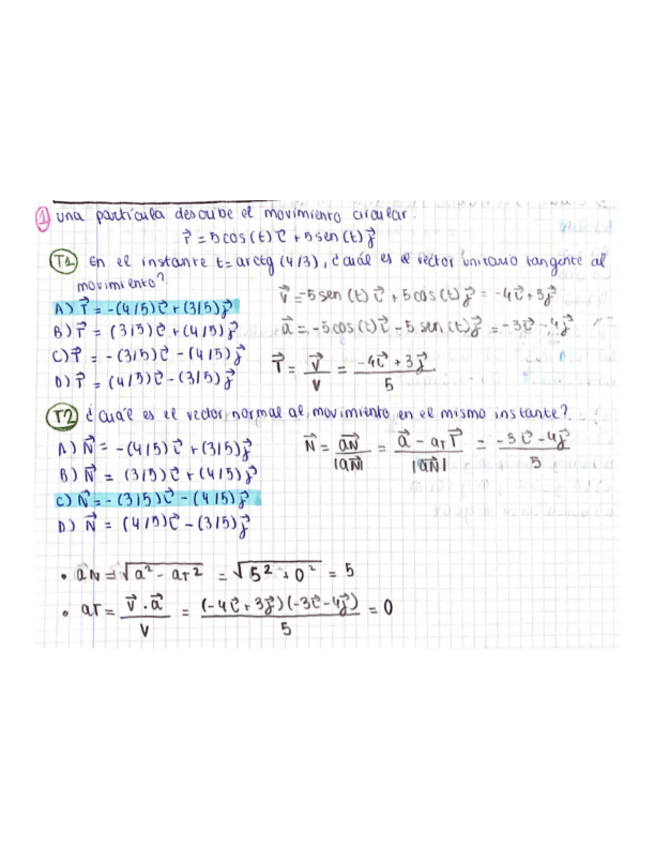 1 una partícula describe el movimiento circular.
r⃗ = 5cos(t) i⃗ + 5sen(t) j⃗
T1 En el instante t = arctg (4/3), ¿cuál es el vector unitario tangente al
movimiento?
A) T⃗ = -(4/5) i⃗ + (3/5) j⃗
B) T⃗ = (3/5) i⃗ + (4/5) j⃗
C) T⃗ = -(3/5) i⃗ - (4/5) j⃗
D) T⃗ = (4/5) i⃗ - (3/5) j⃗
v⃗ = -5sen(t) i⃗ + 5cos(t) j⃗ = -4i⃗ + 3j⃗
a⃗ = -5cos(t) i⃗ - 5sen(t) j⃗ = -3i⃗ - 4j⃗
T⃗ = v⃗ / v = (-4i⃗ + 3j⃗) / 5
T2 ¿cuál es el vector normal al movimiento en el mismo instante?
A) N⃗ = -(4/5) i⃗ + (3/5) j⃗
B) N⃗ = (3/5) i⃗ + (4/5) j⃗
C) N⃗ = -(3/5) i⃗ - (4/5) j⃗
D) N⃗ = (4/5) i⃗ - (3/5) j⃗
N⃗ = aN⃗ / |aN⃗| = (a⃗ - aT T⃗) / |aN⃗| = (-3i⃗ - 4j⃗) / 5
• aN = √(a² - aT²) = √(5² + 0²) = 5
• aT = (v⃗ · a⃗) / v = (-4i⃗ + 3j⃗)(-3i⃗ - 4j⃗) / 5 = 0